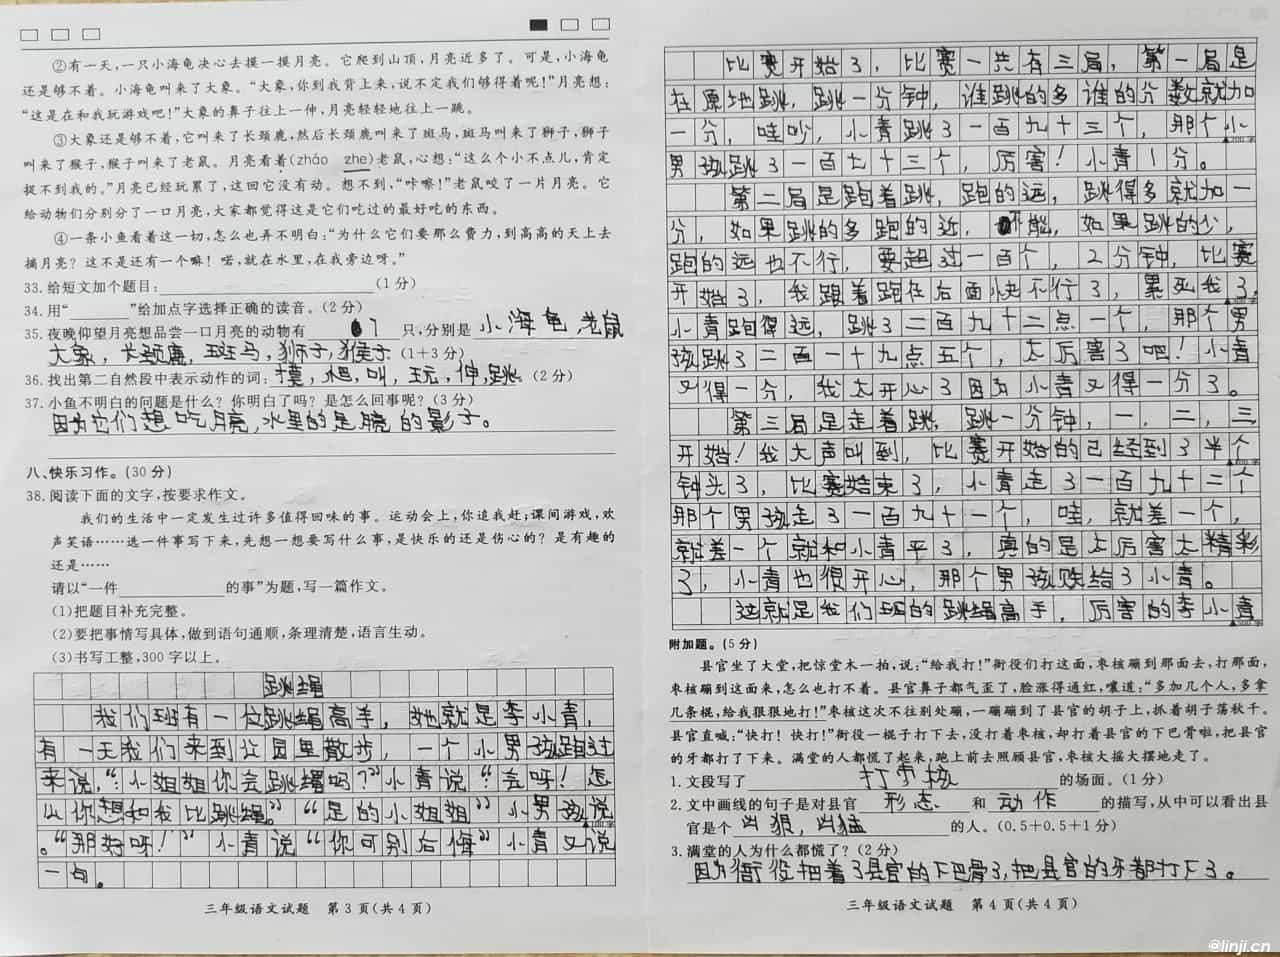 ②有一天,一只小海龟决心去摸一摸月亮。它爬到山顶,月亮近多了。可是,小海龟
还是够不着。小海龟叫来了大象。“大象,你到我背上来,说不定我们够得着呢!”月亮想:
“这是在和我玩游戏吧!”大象的鼻子往上一伸,月亮轻轻地往上一跳。
③大象还是够不着,它叫来了长颈鹿,然后长颈鹿叫来了斑马,斑马叫来了狮子,狮子
叫来了猴子,猴子叫来了老鼠。月亮看着(zháo zhe)老鼠,心想:“这么个小不点儿,肯定
捉不到我的。”月亮已经玩累了,这回它没有动。想不到,“咔嚓!”老鼠咬了一片月亮。它
给动物们分别分了一口月亮,大家都觉得这是它们吃过的最好吃的东西。
④一条小鱼看着这一切,怎么也弄不明白:“为什么它们要那么费力,到高高的天上去
摘月亮?这不是还有一个嘛!喏,就在水里,在我旁边呀。”
33.给短文加个题目:(1分)
34.用“ ”给加点字选择正确的读音。(2分)
35.夜晚仰望月亮想品尝一口月亮的动物有 7 只,分别是 小海龟 老鼠
大象,长颈鹿,斑马,狮子,猴子 (1+3分)
36.找出第二自然段中表示动作的词:摸,爬,叫,玩,伸,跳 (2分)
37.小鱼不明白的问题是什么?你明白了吗?是怎么回事呢?(3分)
因为它们想吃月亮,水里的是月亮的影子。
八、快乐习作。(30分)
38.阅读下面的文字,按要求作文。
我们的生活中一定发生过许多值得回味的事。运动会上,你追我赶;课间游戏,欢
声笑语……选一件事写下来,先想一想要写什么事,是快乐的还是伤心的?是有趣的
还是……
请以“一件 的事”为题,写一篇作文。
(1)把题目补充完整。
(2)要把事情写具体,做到语句通顺,条理清楚,语言生动。
(3)书写工整,300字以上。
跳绳
我们班有一位跳绳高手,她就是李小青,
有一天我们来到公园里散步,一个小男孩跑过
来说,“小姐姐你会跳绳吗?”小青说“会呀!怎
么你想和我比跳绳。”“是的小姐姐”小男孩说
。“那好呀!”小青说“你可别后悔”小青又说
▲100字
一句。
三年级语文试题 第3页(共4页)
比赛开始了,比赛一共有三局,第一局是
在原地跳,跳一分钟,谁跳的多谁的分数就加
一分,哇吵,小青跳了一百九十三个,那个小
▲200字
男孩跳了一百七十三个,厉害!小青1分。
第二局是跑着跳,跑的远,跳得多就加一
分,如果跳的多跑的近,不能,如果跳的少,
跑的远也不行,要超过一百个,2分钟,比赛
开始了,我跟着跑在后面快不行了,累死我了,
小青跑得远,跳了二百九十二点一个,那个男
孩跳了二百一十九点五个,太厉害了吧!小青
又得一分,我太开心了因为小青又得一分了。
第三局是走着跳,跳一分钟,一,二,三
开始!我大声叫到,比赛开始的已经到了半个
钟头了,比赛结束了,小青走了一百九十二个
那个男孩走了一百九十一个,哇,就差一个,
就差一个就和小青平了,真的是太厉害太精彩
了,小青也很开心,那个男孩败给了小青。
这就是我们班的跳绳高手,厉害的李小青
附加题。(5分)
县官坐了大堂,把惊堂木一拍,说:“给我打!”衙役们打这面,枣核蹦到那面去,打那面,
枣核蹦到这面来,怎么也打不着。县官鼻子都气歪了,脸涨得通红,嚷道:“多加几个人,多拿
几条棍,给我狠狠地打!”枣核这次不往别处蹦,一蹦蹦到了县官的胡子上,抓着胡子荡秋千。
县官直喊:“快打!快打!”衙役一棍子打下去,没打着枣核,却打着县官的下巴骨啦,把县官
的牙都打了下来。满堂的人都慌了起来,跑上前去照顾县官,枣核大摇大摆地走了。
1.文段写了 打枣核 的场面。(1分)
2.文中画线的句子是对县官 形态 和 动作 的描写,从中可以看出县
官是个 凶狠,凶猛 的人。(0.5+0.5+1分)
3.满堂的人为什么都慌了?(2分)
因为衙役把着了县官的下巴骨了,把县官的牙都打下了。
三年级语文试题 第4页(共4页)
@linji.cn